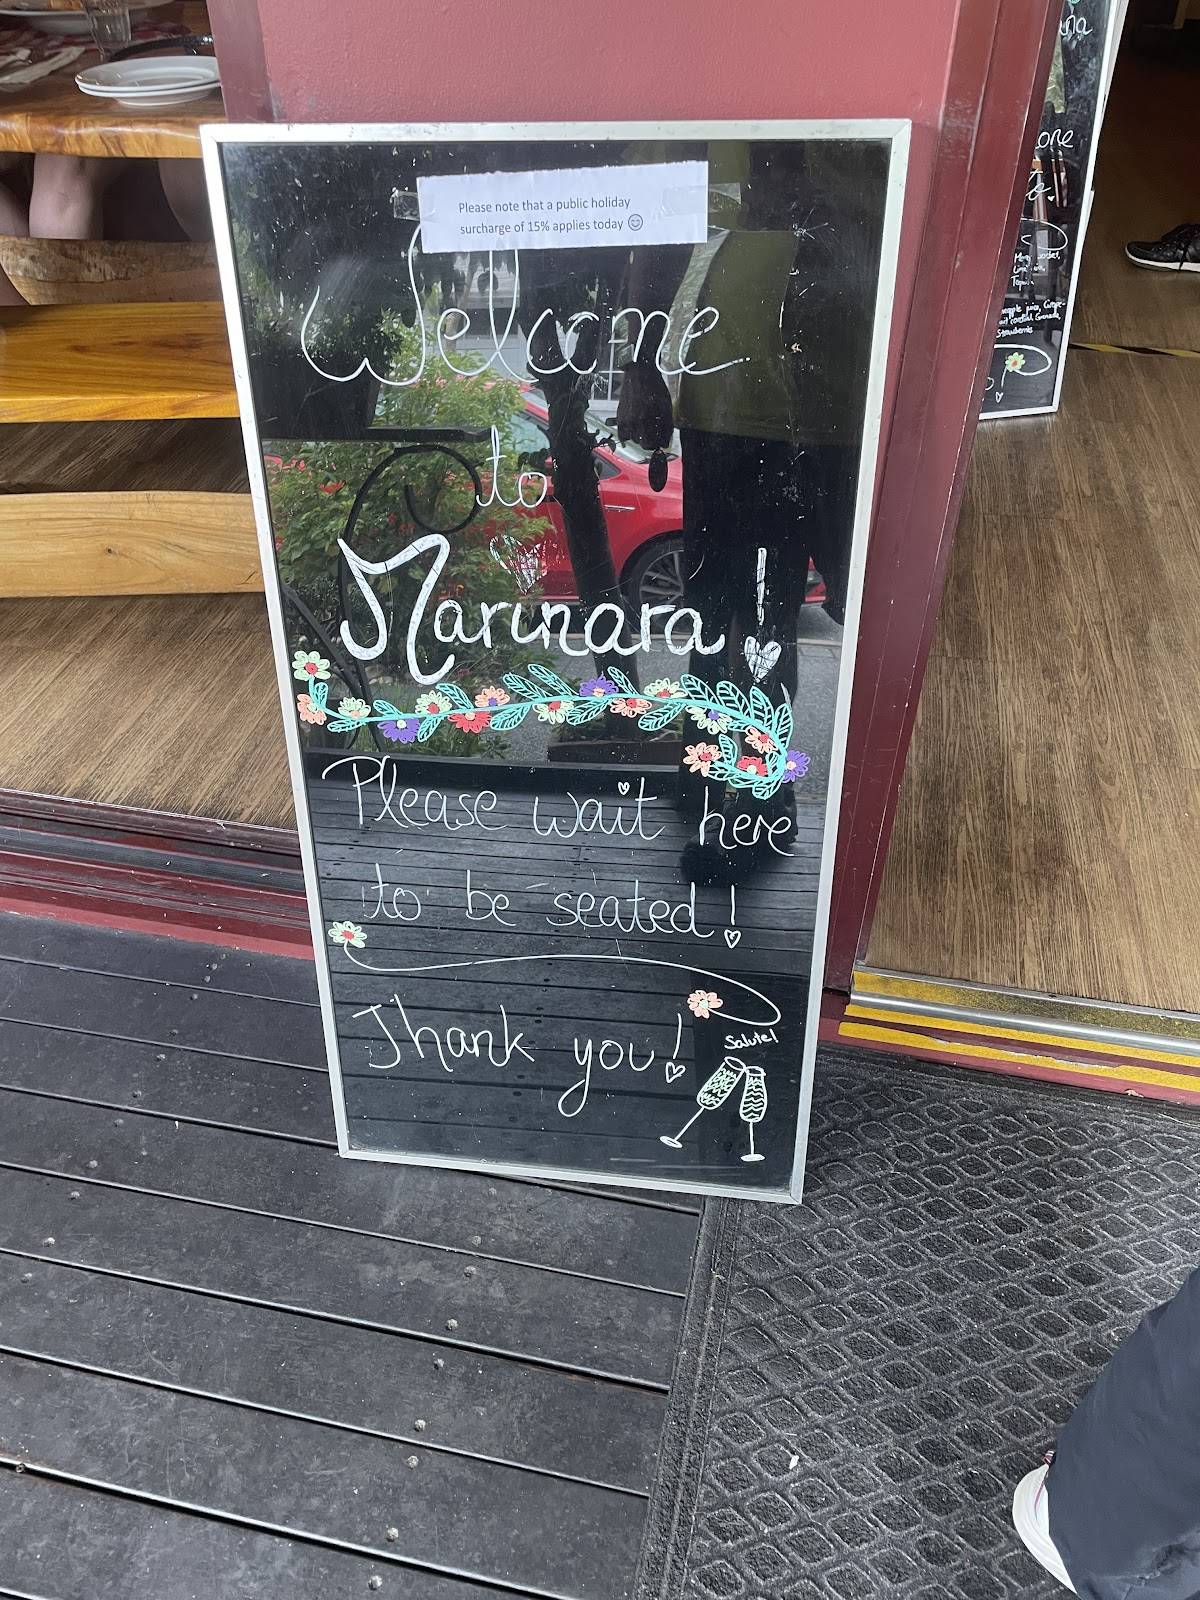 Please note that a public holiday
surcharge of 15% applies today 😊
Welcome
to
Marinara!
Please wait here
to be seated!
Thank you!
Salute!
Strawberries